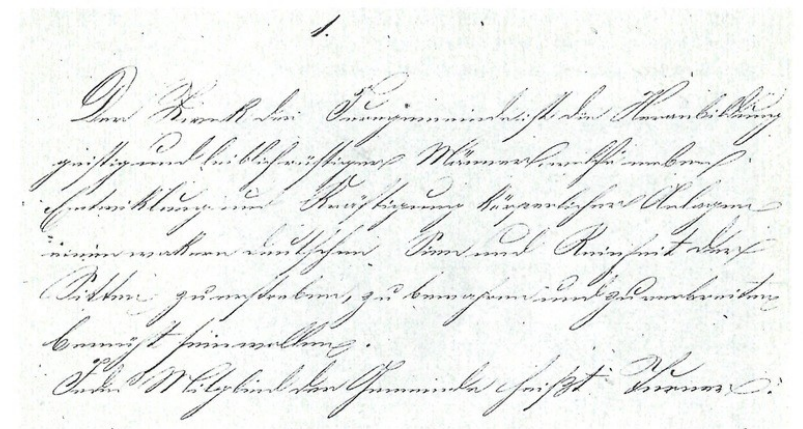 1.
Der Zweck der Turngemeinde ist die Heranbildung
geistig und leiblich rüstiger Männer, welche neben
Entwiklung und Kräftigung körperlicher Anlagen
einen wakern deutschen Sinn und Reinheit der
Sitten zu erstreben, zu bewahren und zu verbreiten
bemüht sein wollen.
Jedes Mitglied der Gemeinde heißt Turner.